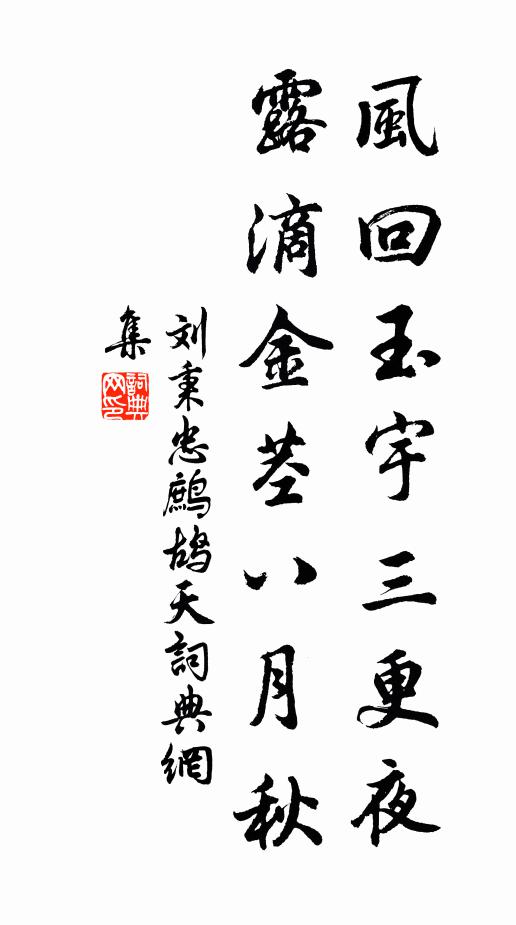 風回玉宇三更夜
露滴金茎八月秋
刘秉忠鷓鴣天詞典網
集
詞典网印